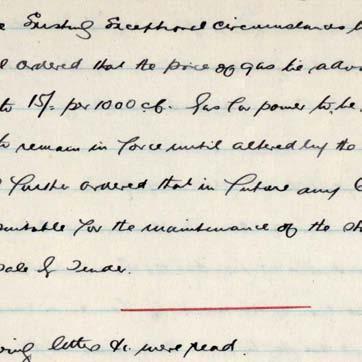 Existing Exceptional Circumstances
ordered that the price of Gas be adv
to 15/- per 1000 c.f. Gas for power to be
to remain in force until altered by the
further ordered that in future any
suitable for the maintenance of the
Sale by Tender.
letters &c. were read.